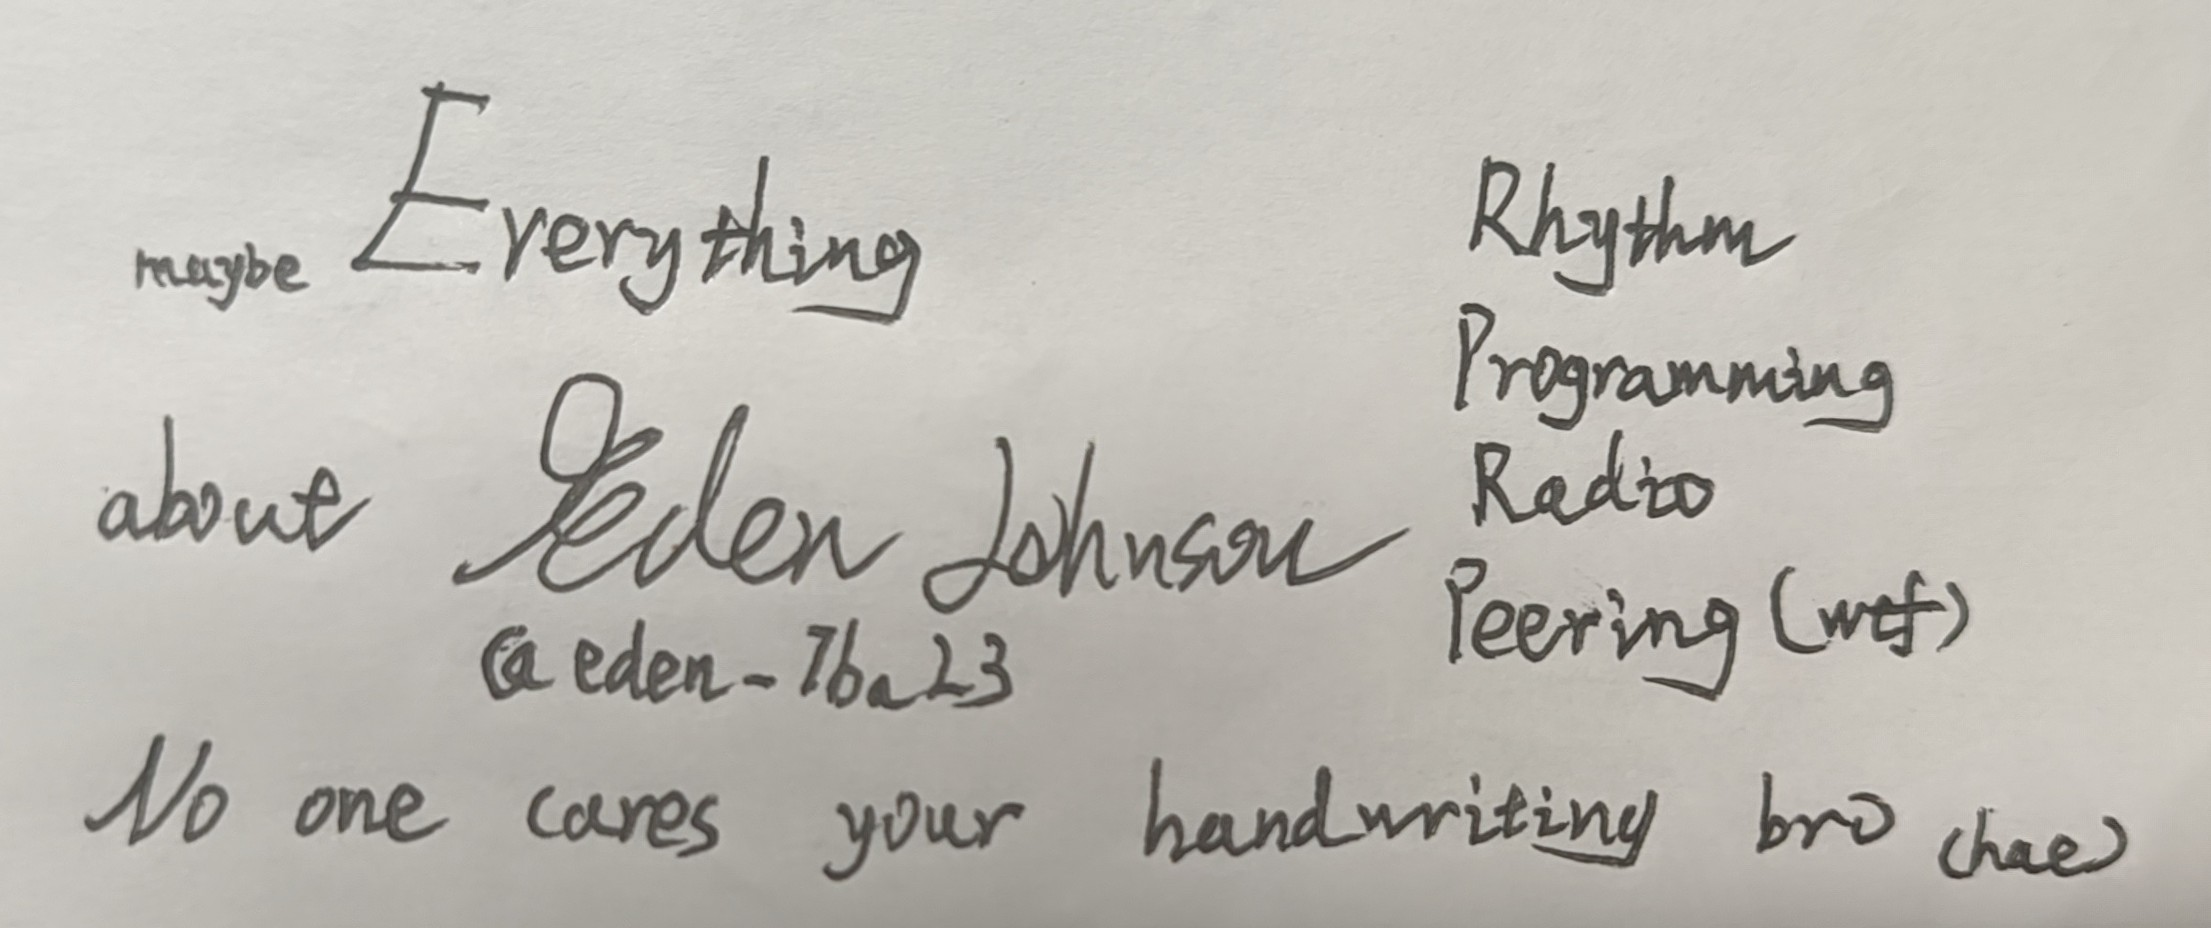 maybe Everything
about Eden Johnson
@eden-7ba23
Rhythm
Programming
Radio
Peering (wtf)
No one cares your handwriting bro (hae)